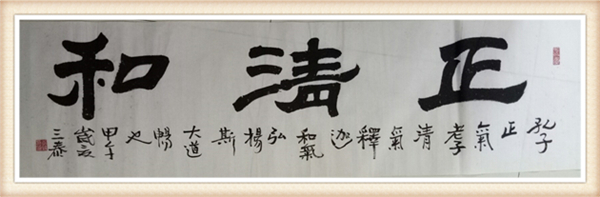 正清和
孔子正氣老子清氣釋迦和氣弘揚斯大道暢也
甲午歲
三泰